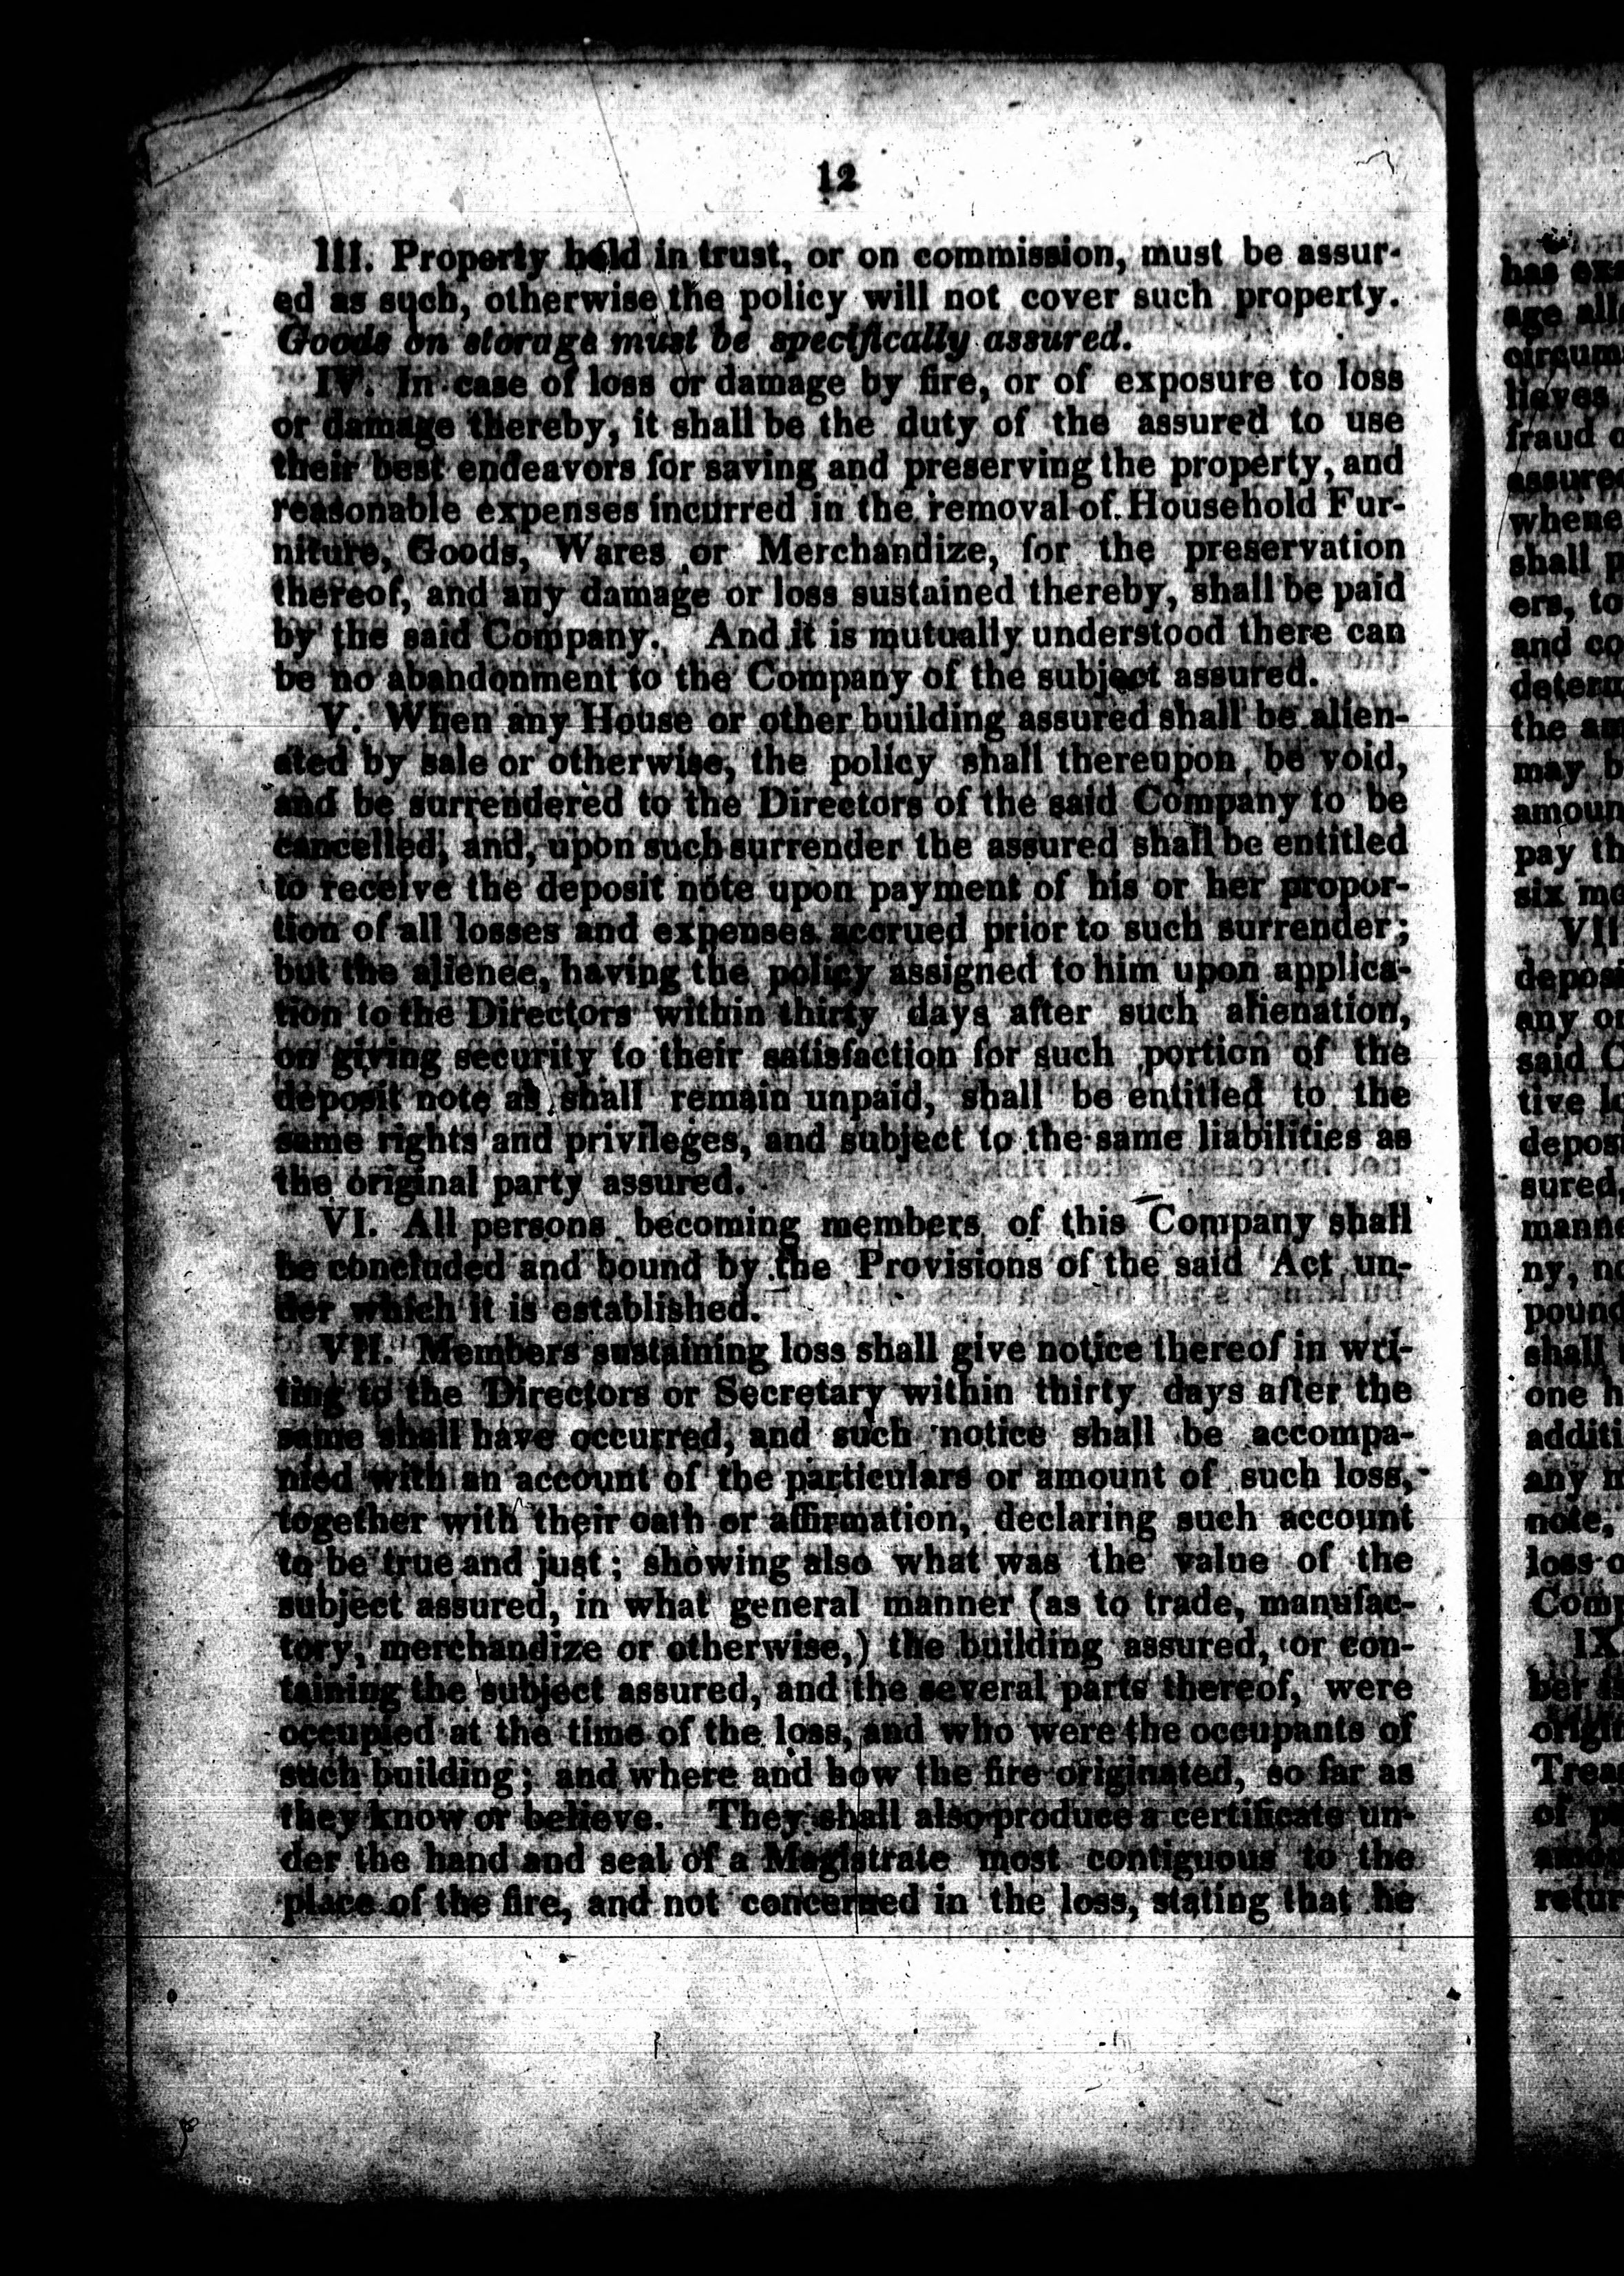 12
III. Property held in trust, or on commission, must be assur-
ed as such, otherwise the policy will not cover such property.
Goods on storage must be specifically assured.
IV. In case of loss or damage by fire, or of exposure to loss
or damage thereby, it shall be the duty of the assured to use
their best endeavors for saving and preserving the property, and
reasonable expenses incurred in the removal of Household Fur-
niture, Goods, Wares or Merchandize, for the preservation
thereof, and any damage or loss sustained thereby, shall be paid
by the said Company. And it is mutually understood there can
be no abandonment to the Company of the subject assured.
V. When any House or other building assured shall be alien-
ated by sale or otherwise, the policy shall thereupon be void,
and be surrendered to the Directors of the said Company to be
cancelled, and, upon such surrender the assured shall be entitled
to receive the deposit note upon payment of his or her propor-
tion of all losses and expenses accrued prior to such surrender;
but the alienee, having the policy assigned to him upon applica-
tion to the Directors within thirty days after such alienation,
on giving security to their satisfaction for such portion of the
deposit note as shall remain unpaid, shall be entitled to the
same rights and privileges, and subject to the same liabilities as
the original party assured.
VI. All persons becoming members of this Company shall
be concluded and bound by the Provisions of the said Act un-
der which it is established.
VII. Members sustaining loss shall give notice thereof in wri-
ting to the Directors or Secretary within thirty days after the
same shall have occurred, and such notice shall be accompa-
nied with an account of the particulars or amount of such loss,
together with their oath or affirmation, declaring such account
to be true and just; showing also what was the value of the
subject assured, in what general manner (as to trade, manufac-
tory, merchandize or otherwise,) the building assured, or con-
taining the subject assured, and the several parts thereof, were
occupied at the time of the loss, and who were the occupants of
such building; and where and how the fire originated, so far as
they know or believe. They shall also produce a certificate un-
der the hand and seal of a Magistrate most contiguous to the
place of the fire, and not concerned in the loss, stating that he
has
age
lieves
fraud
whene
shall
ers, to
and
determ
the
may
amoun
pay
six
VII
deposi
any
said
tive
depos
sured
mann
ny,
poun
shall
one
additi
any
note,
loss
Com
IX
ber
origi
Trea
of
retur